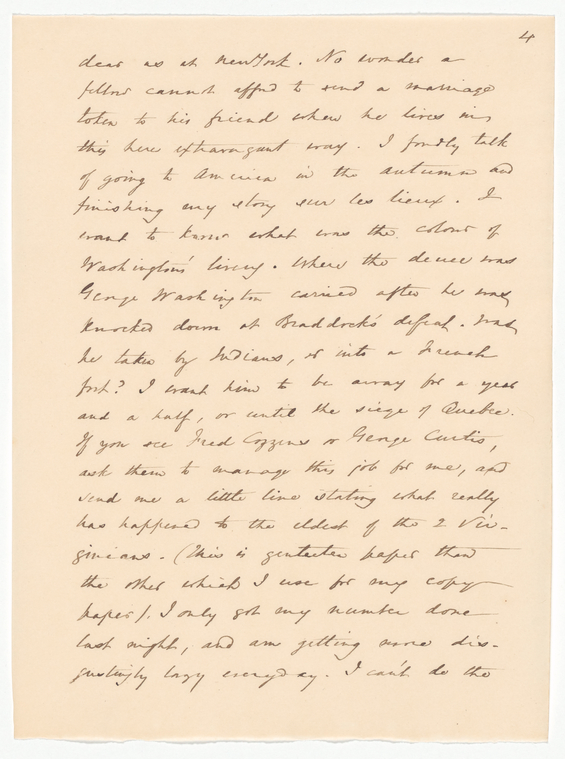 4
dear as at New York. No wonder a
fellow cannot afford to send a marriage
token to his friend when he lives in
this here extravagant way. I fondly talk
of going to America in the autumn and
finishing my story sur les lieux. I
want to know what was the colour of
Washington's livery. Where the deuce was
George Washington carried after he was
knocked down at Braddock's defeat. Was
he taken by Indians, or into a French
fort? I want him to be away for a year
and a half, or until the siege of Quebec.
If you see Fred Cozzens or George Curtis,
ask them to manage this job for me, and
send me a little line stating what really
has happened to the eldest of the 2 Vir-
ginians. (This is genteeler paper than
the other which I use for my copy
paper). I only got my number done
last night, and am getting more dis-
gustingly lazy everyday. I can't do the